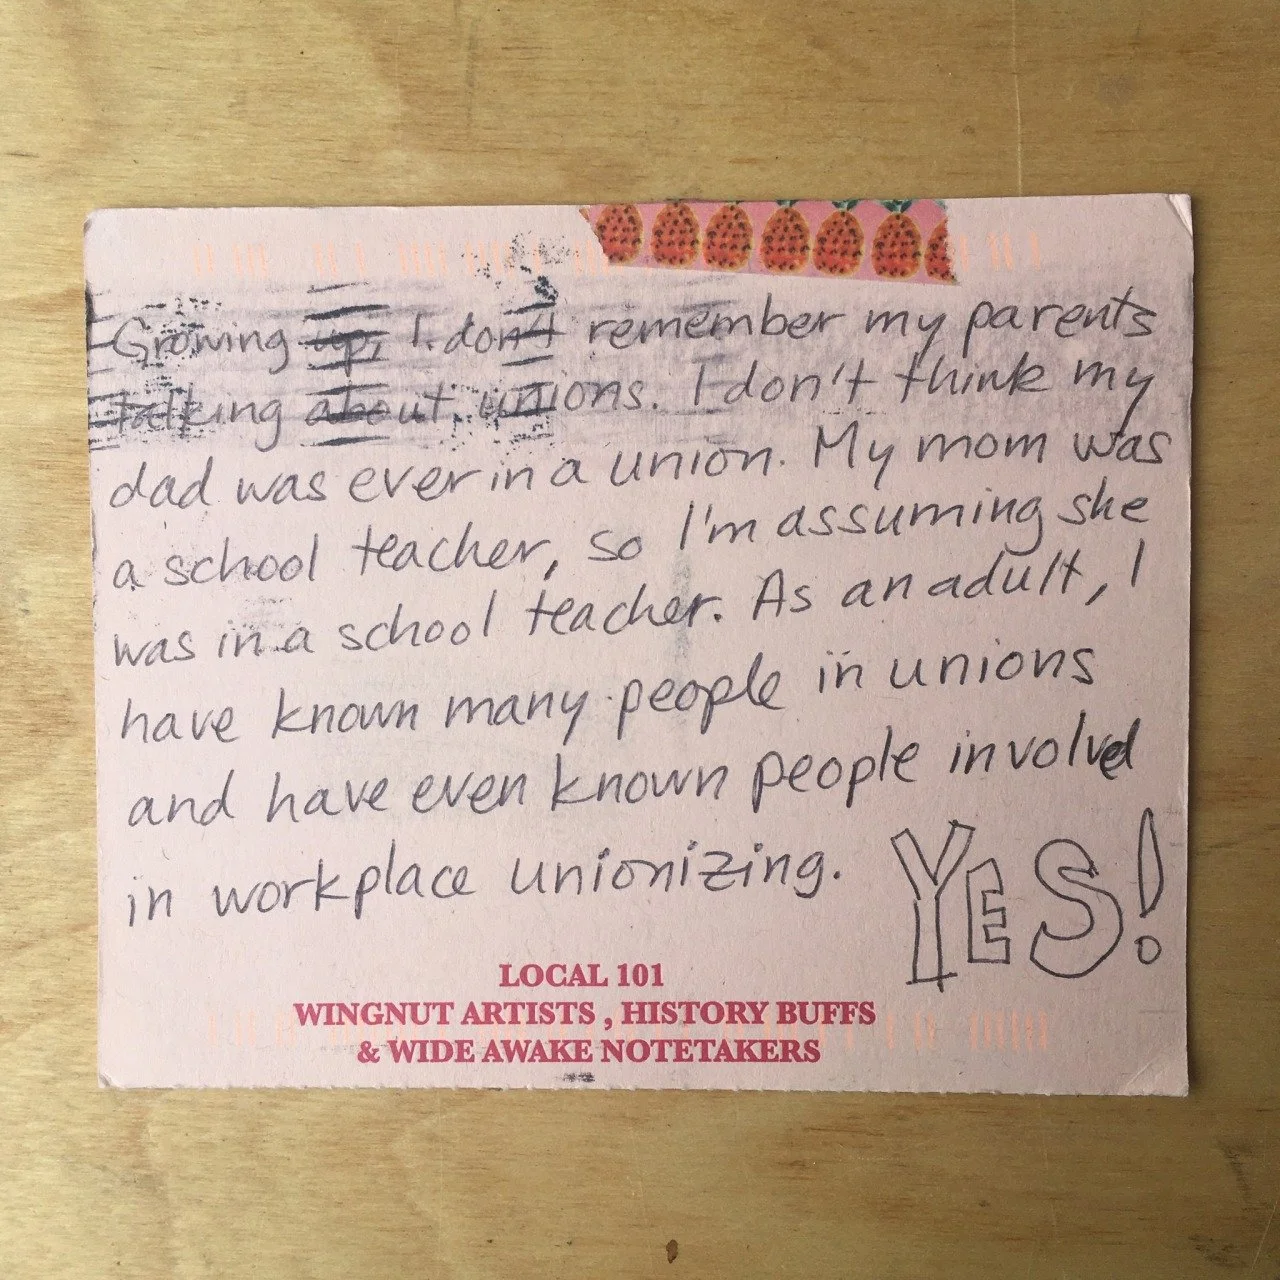 Growing up, I don't remember my parents
talking about unions. I don't think my
dad was ever in a union. My mom was
a school teacher, so I'm assuming she
was in a school teacher. As an adult, I
have known many people in unions
and have even known people involved
in workplace unionizing. YES!
LOCAL 101
WINGNUT ARTISTS , HISTORY BUFFS
& WIDE AWAKE NOTETAKERS